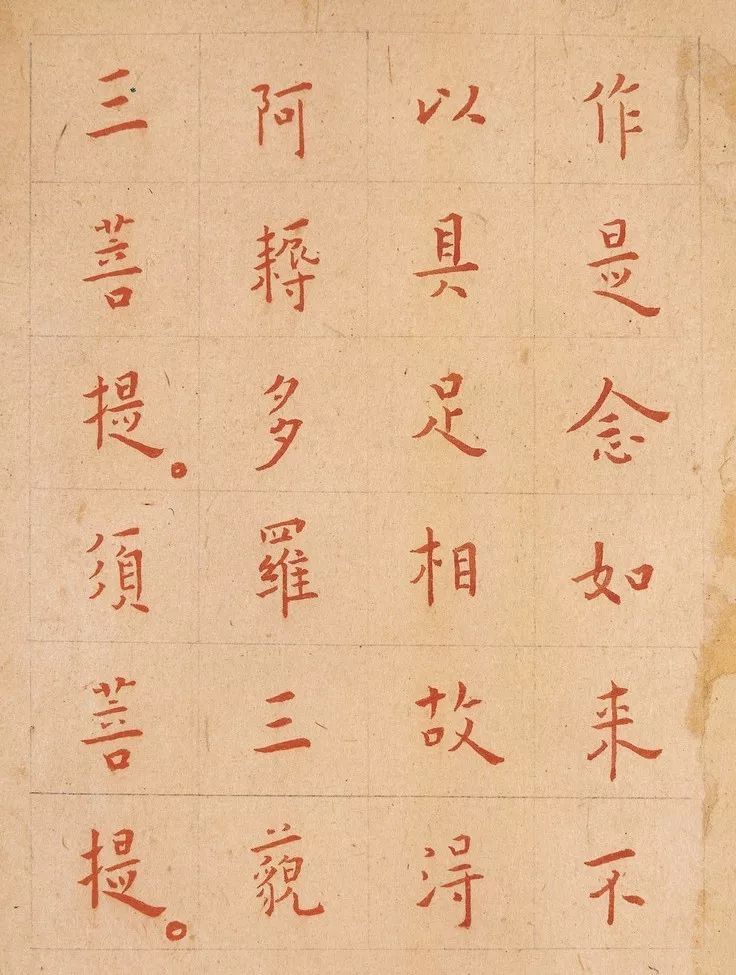 作是念如来不
以具足相故淂
阿耨多羅三藐
三菩提。須
菩提。